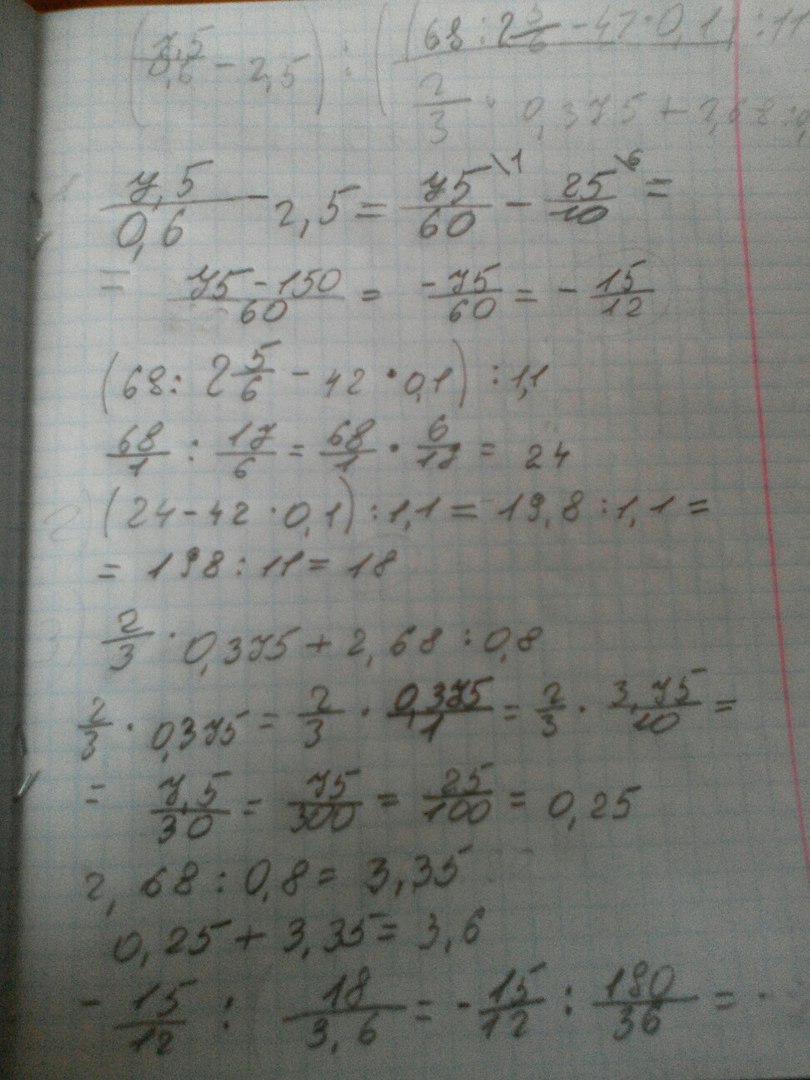 (7,5/0,6 - 2,5) : ((68 : 2 5/6 - 42 · 0,1) : 11
2/3 · 0,375 + 2,68 :
7,5/0,6 - 2,5 = 75/60 \1 - 25/10 \6 =
= 75 - 150/60 = -75/60 = - 15/12
(68 : 2 5/6 - 42 · 0,1) : 1,1
68/1 : 17/6 = 68/1 · 6/17 = 24
2) (24 - 42 · 0,1) : 1,1 = 19,8 : 1,1 =
= 198 : 11 = 18
3) 2/3 · 0,375 + 2,68 : 0,8
2/3 · 0,375 = 2/3 · 0,375/1 = 2/3 · 3,75/10 =
= 7,5/30 = 75/300 = 25/100 = 0,25
2,68 : 0,8 = 3,35
0,25 + 3,35 = 3,6
- 15/12 : 18/3,6 = - 15/12 : 180/36 =